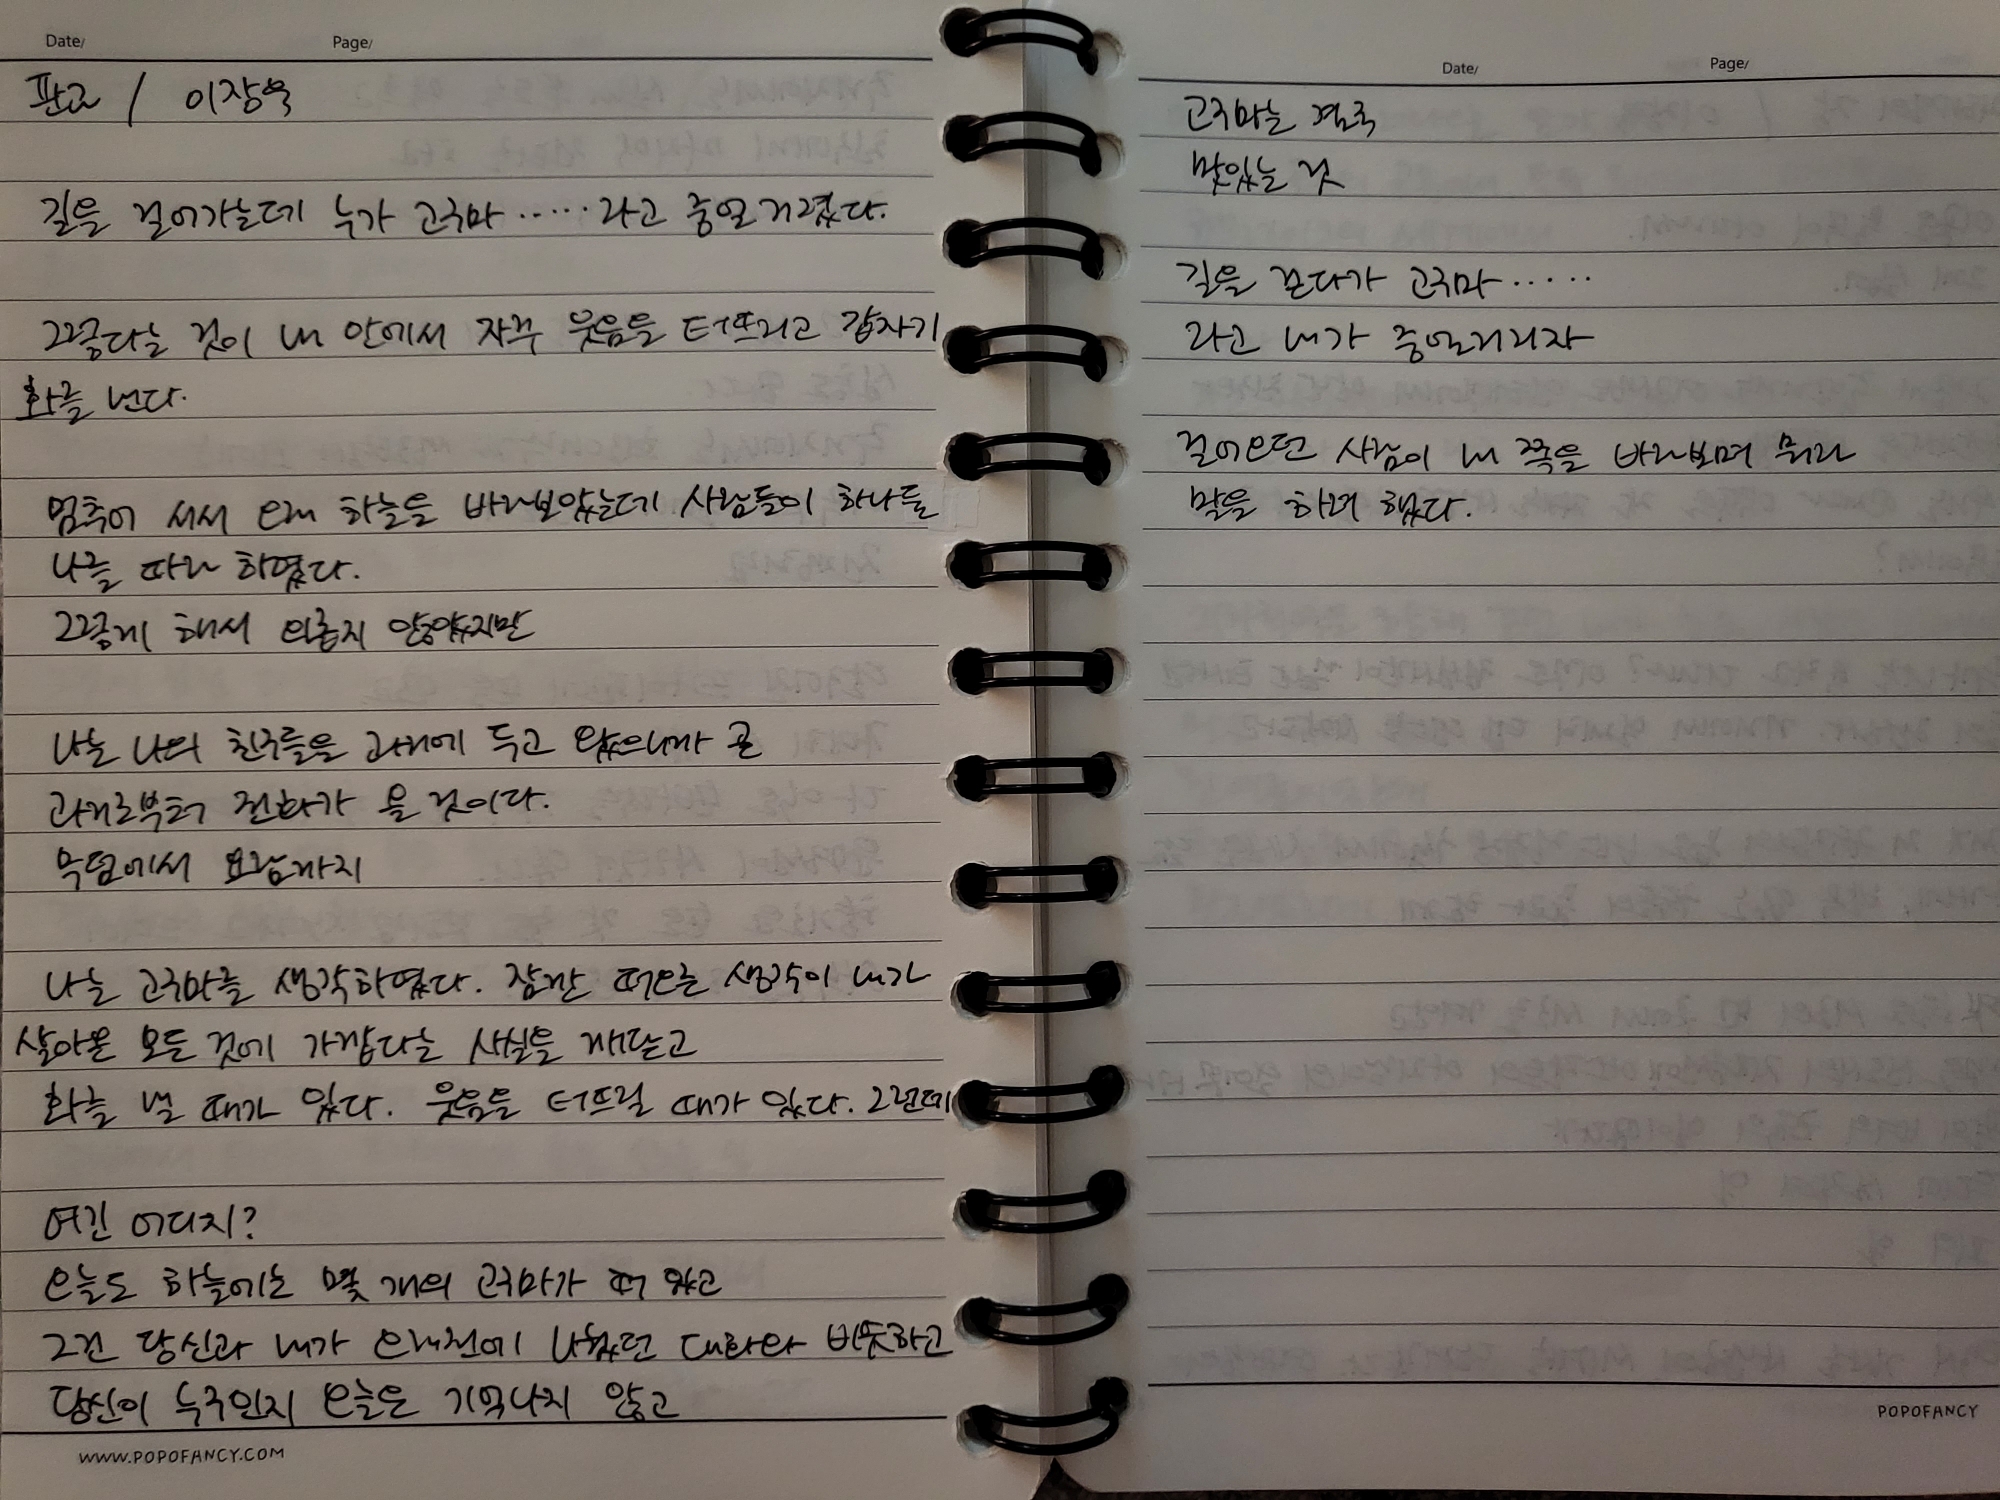 Date/
Page/
판교 / 이장욱
길을 걸어가는데 누가 고구마......라고 중얼거렸다.
그렇다는 것이 내 안에서 자꾸 웃음을 터뜨리고 갑자기
화를 낸다.
멈추어 서서 오래 하늘을 바라보았는데 사람들이 하나둘
나를 따라 하였다.
그렇게 해서 외롭지 않았지만
나는 나의 친구들을 과거에 두고 왔으니까 곧
과거로부터 전화가 올 것이다.
무덤에서 요람까지
나는 고구마를 생각하였다. 잠깐 떠오른 생각이 내가
살아온 모든 것에 가깝다는 사실을 깨닫고
화를 낼 때가 있다. 웃음을 터뜨릴 때가 있다. 그런데
여긴 어디지?
오늘도 하늘에는 몇 개의 고구마가 떠 있고
그건 당신과 내가 오래전에 나눴던 대화와 비슷하고
당신이 누구인지 오늘은 기억나지 않고
WWW.POPOFANCY.COM
Date/
Page/
고구마는 결국
맛있는 것
길을 걷다가 고구마......
라고 내가 중얼거리자
걸어오던 사람이 내 쪽을 바라보며 뭐라
말을 하려 했다.
POPOFANCY